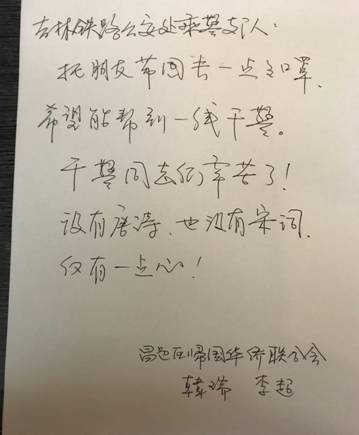 吉林铁路公安处乘警支队：
托朋友带回去一点点口罩、
希望能帮到一线干警。
干警同志们辛苦了！
没有唐诗、也没有宋词、
仅有一点心！
昌邑区归国华侨联合会
韩瑞 李超